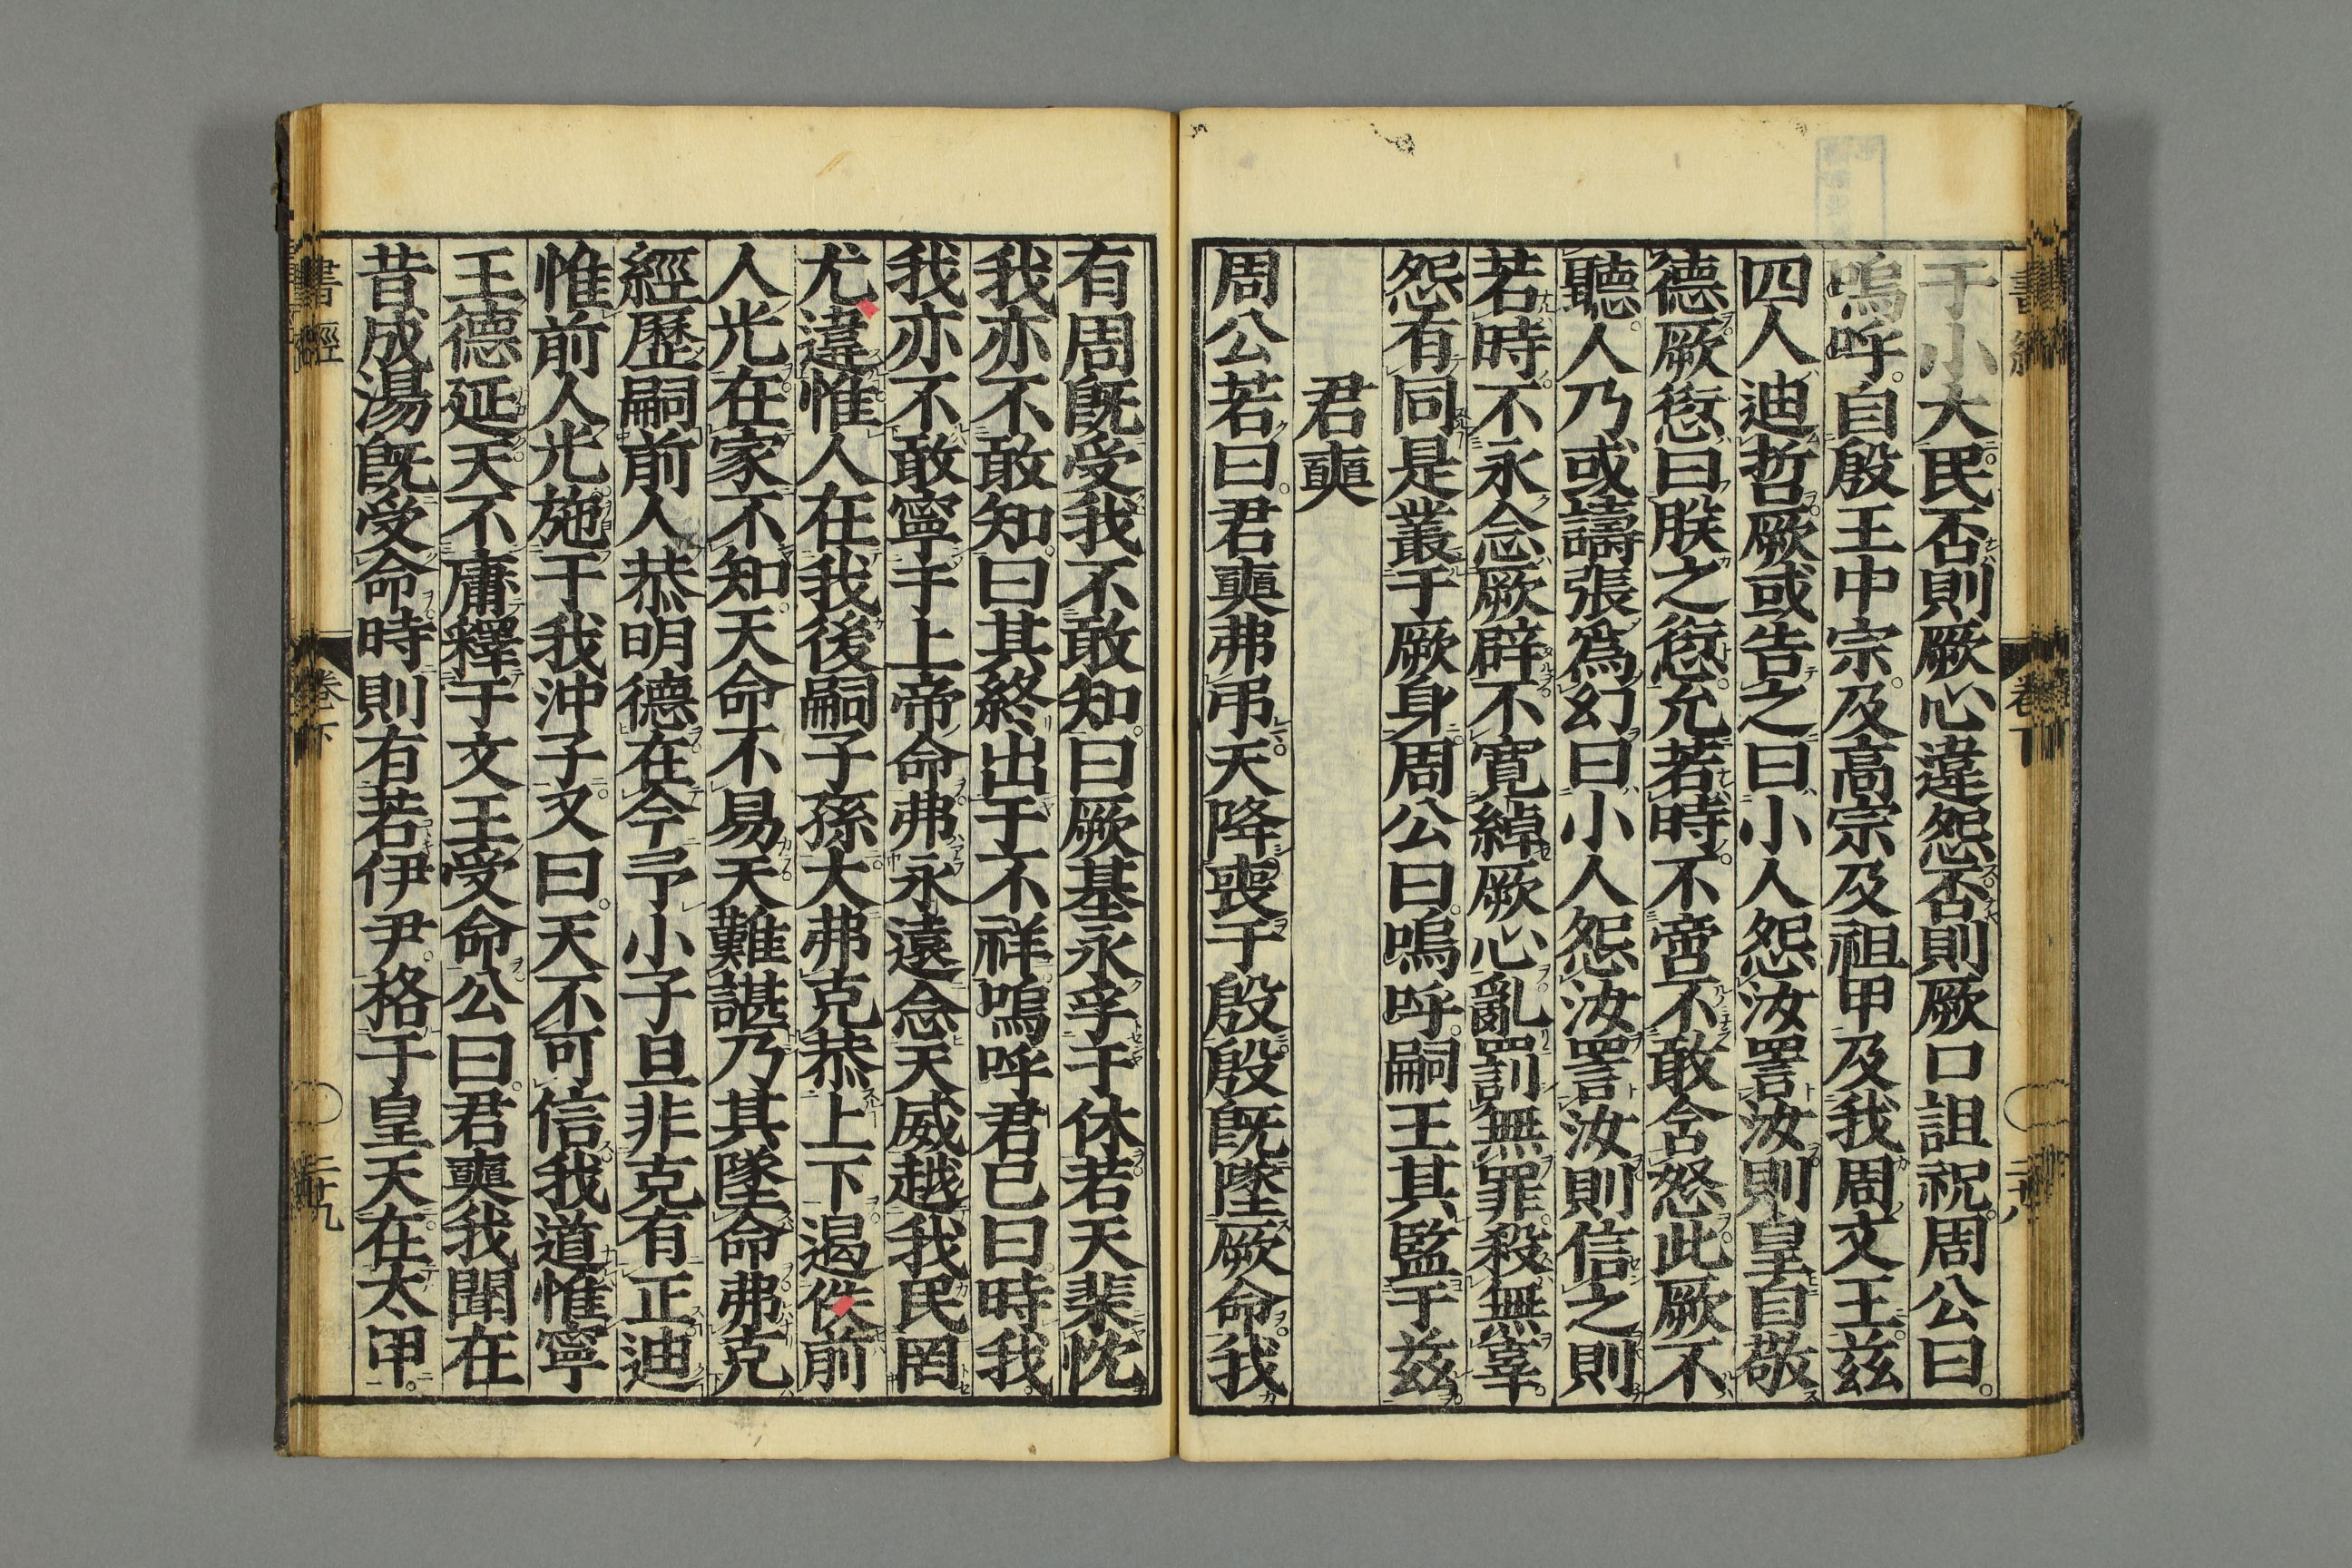 于小大民否則厥心違怨否則厥口詛祝周公曰
嗚呼自殷王中宗及高宗及祖甲及我周文王茲
四人迪哲厥或告之曰小人怨汝詈汝則皇自敬
德厥愆曰朕之愆允若時不啻不敢含怒此厥不
聽人乃或譸張爲幻曰小人怨汝詈汝則信之則
若時不永念厥辟不寬綽厥心亂罰無罪殺無辜
怨有同是叢于厥身周公曰嗚呼嗣王其監于茲
君奭
周公若曰君奭弗弔天降喪于殷殷旣墜厥命我
有周旣受我不敢知曰厥基永孚于休若天棐忱
我亦不敢知曰其終出于不祥嗚呼君已曰時我
我亦不敢寧于上帝命弗永遠念天威越我民罔
尤違惟人在我後嗣子孫大弗克恭上下遏佚前
人光在家不知天命不易天難諶乃其墜命弗克
經歷嗣前人恭明德在今予小子旦非克有正迪
惟前人光施于我沖子又曰天不可信我道惟寧
王德延天不庸釋于文王受命公曰君奭我聞在
昔成湯旣受命時則有若伊尹格于皇天在太甲
書經
卷下
二十九